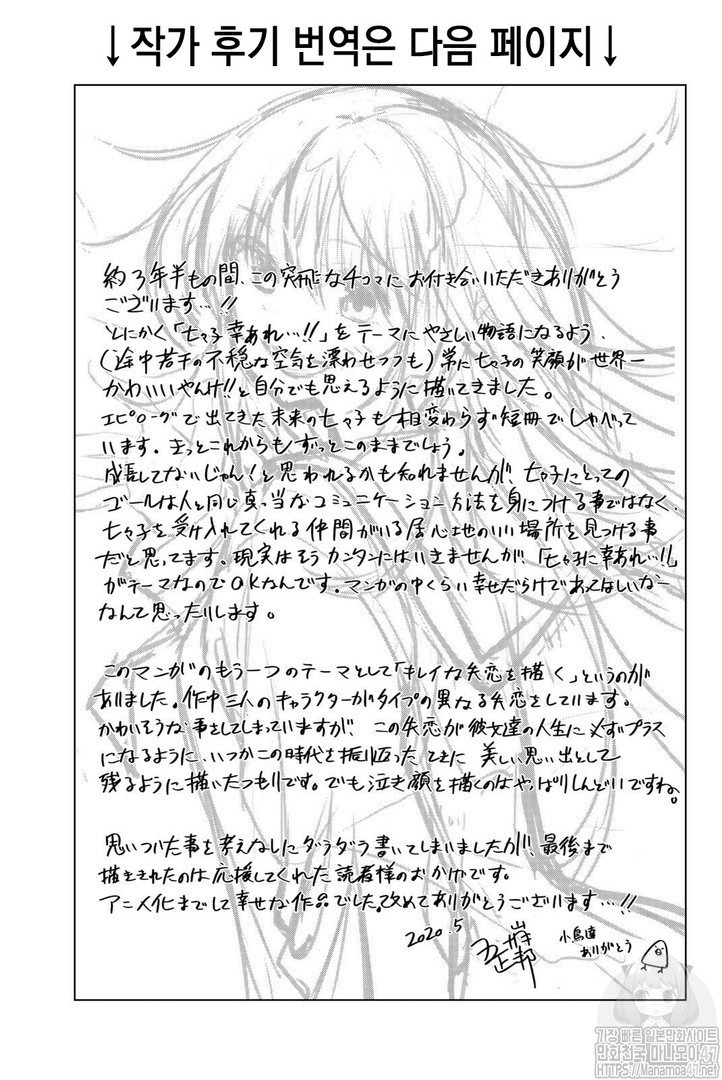 ↓작가 후기 번역은 다음 페이지↓
約3年半もの間、この突飛な4コマにお付き合いいただきありがとう
ございます…!!
とにかく「七々子幸あれ…!!」をテーマにやさしい物語になるよう、
(途中若干の不穏な空気を漂わせつつも)常に七々子の笑顔が世界一
かわいいやんけ!!と自分でも思えるように描いてきました。
エピローグで出てきた未来の七々子も相変わらず短冊でしゃべって
います。きっとこれからもずっとこのままでしょう。
成長してないじゃん!と思われるかも知れませんが、七々子にとっての
ゴールは人と同じ真っ当なコミュニケーション方法を身につける事ではなく、
七々子を受け入れてくれる仲間がいる居心地のいい場所を見つける事
だと思ってます。現実はそうカンタンにはいきませんが、「七々子に幸あれ…!!」
がテーマなのでOKなんです。マンガの中くらい幸せだらけであってほしいなー
なんて思ったりします。
このマンガのもう一つのテーマとして「キレイな失恋を描く」というのが
ありました。作中三人のキャラクターがタイプの異なる失恋をしています。
かわいそうな事をしてしまっていますが、この失恋が彼女達の人生に必ずプラス
になるように、いつかこの時代を振り返ったときに美しい思い出として
残るように描いたつもりです。でも泣き顔を描くのはやっぱりしんどいですね。
思いついた事を考えなしにダラダラ書いてしまいましたが、最後まで
描ききれたのは応援してくれた読者様のおかげです。
アニメ化までして幸せな作品でした。改めてありがとうございます…!!
2020.5
小鳥達
ありがとう
가장 빠른 일본만화사이트
만화천국 마나모아47
HTTPS://Manamoa47.net